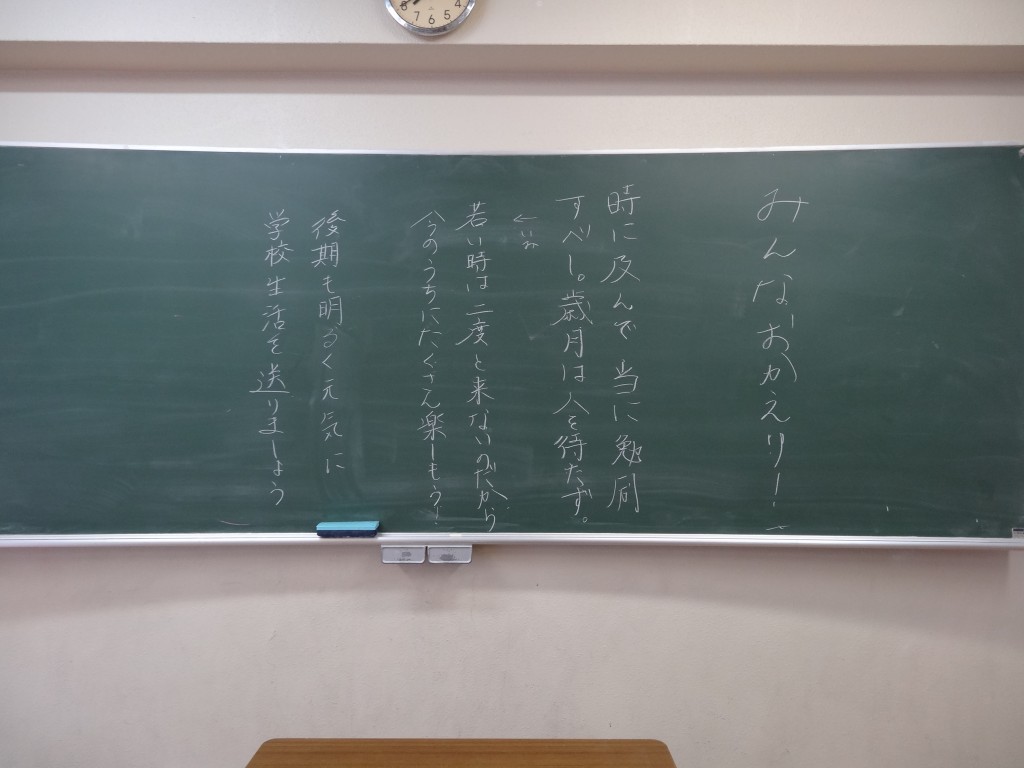 8 7 6 5 4
みんなおかえり！
時に及んで当に勉励
すべし。歳月は人を待たず。
←
若い時は二度と来ないのだから
今のうちにたくさん楽しもう！
後期も明るく元気に
学校生活を送りましょう